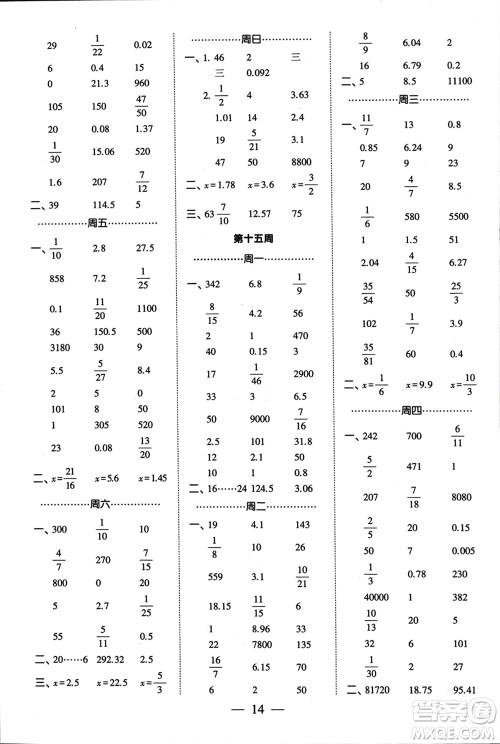 29 1/22 0.02
6 0.4 15
0 21.3 960
105 150 47/50
20 0.08 1.37
1/30 15.06 520
1.6 207 7/12
二、39 114.5 5
周五
一、1/10 2.8 27.5
858 7.2 2
0.1 11/20 1100
36 150.5 500
3180 30 9
5.5 5/27 8.4
2 5 0
101 8 0
1 305 520
23 0.08 13/20
二、x=21/16 x=5.6 x=1.45
周六
一、300 1/10 10
4/7 270 7/15
800 0 0
5 2.7 1/25
55 5/11 0.5
二、20……6 292.32 2.5
三、x=2.5 x=22.5 x=5/3
周日
一、1. 46 2 三
三 0.092
2. 1/2 4 3.63
1.01 14 2.4
19 5/21 0.5
47 50 8800
二、x=1.78 x=3.6 x=3/2
三、63 7/10 12.57 75
第十五周
周一
一、342 6.8 1/9
8/15 4.2 56
2 1 1
40 0.15 3
1 1/46 2900
50 9000 7/8
101 1.5 31.8
12 0.1 0
二、16……24 124.5 3.06
周二
一、19 4.1 143
1/8 30 2
559 3.1 10/21
18.15 5/12 30
1 8.96 33
22 7800 135
16/7 6.15 50
6 2 0
8/9 6.04 2
16 6.79 0.2
二、5 8.5 11100
周三
一、11/7 13 0.8
0.85 6.24 9
7 9 13
20 4/7 40
1/6 580 5500
2.04 4/15 6.6
35/54 50 25/3
102 7/13 0
35/81 60 1
二、x=1/6 x=9.9 x=10/3
周四
一、242 700 6/11
5/2 471 1
207 7/18 8080
1/4 70 0.005
3/2 0.78 230
40000 1 1
1/6 20 5
1/30 20 2
二、81720 18.75 95.41
14
答案圈
MXQE.COM